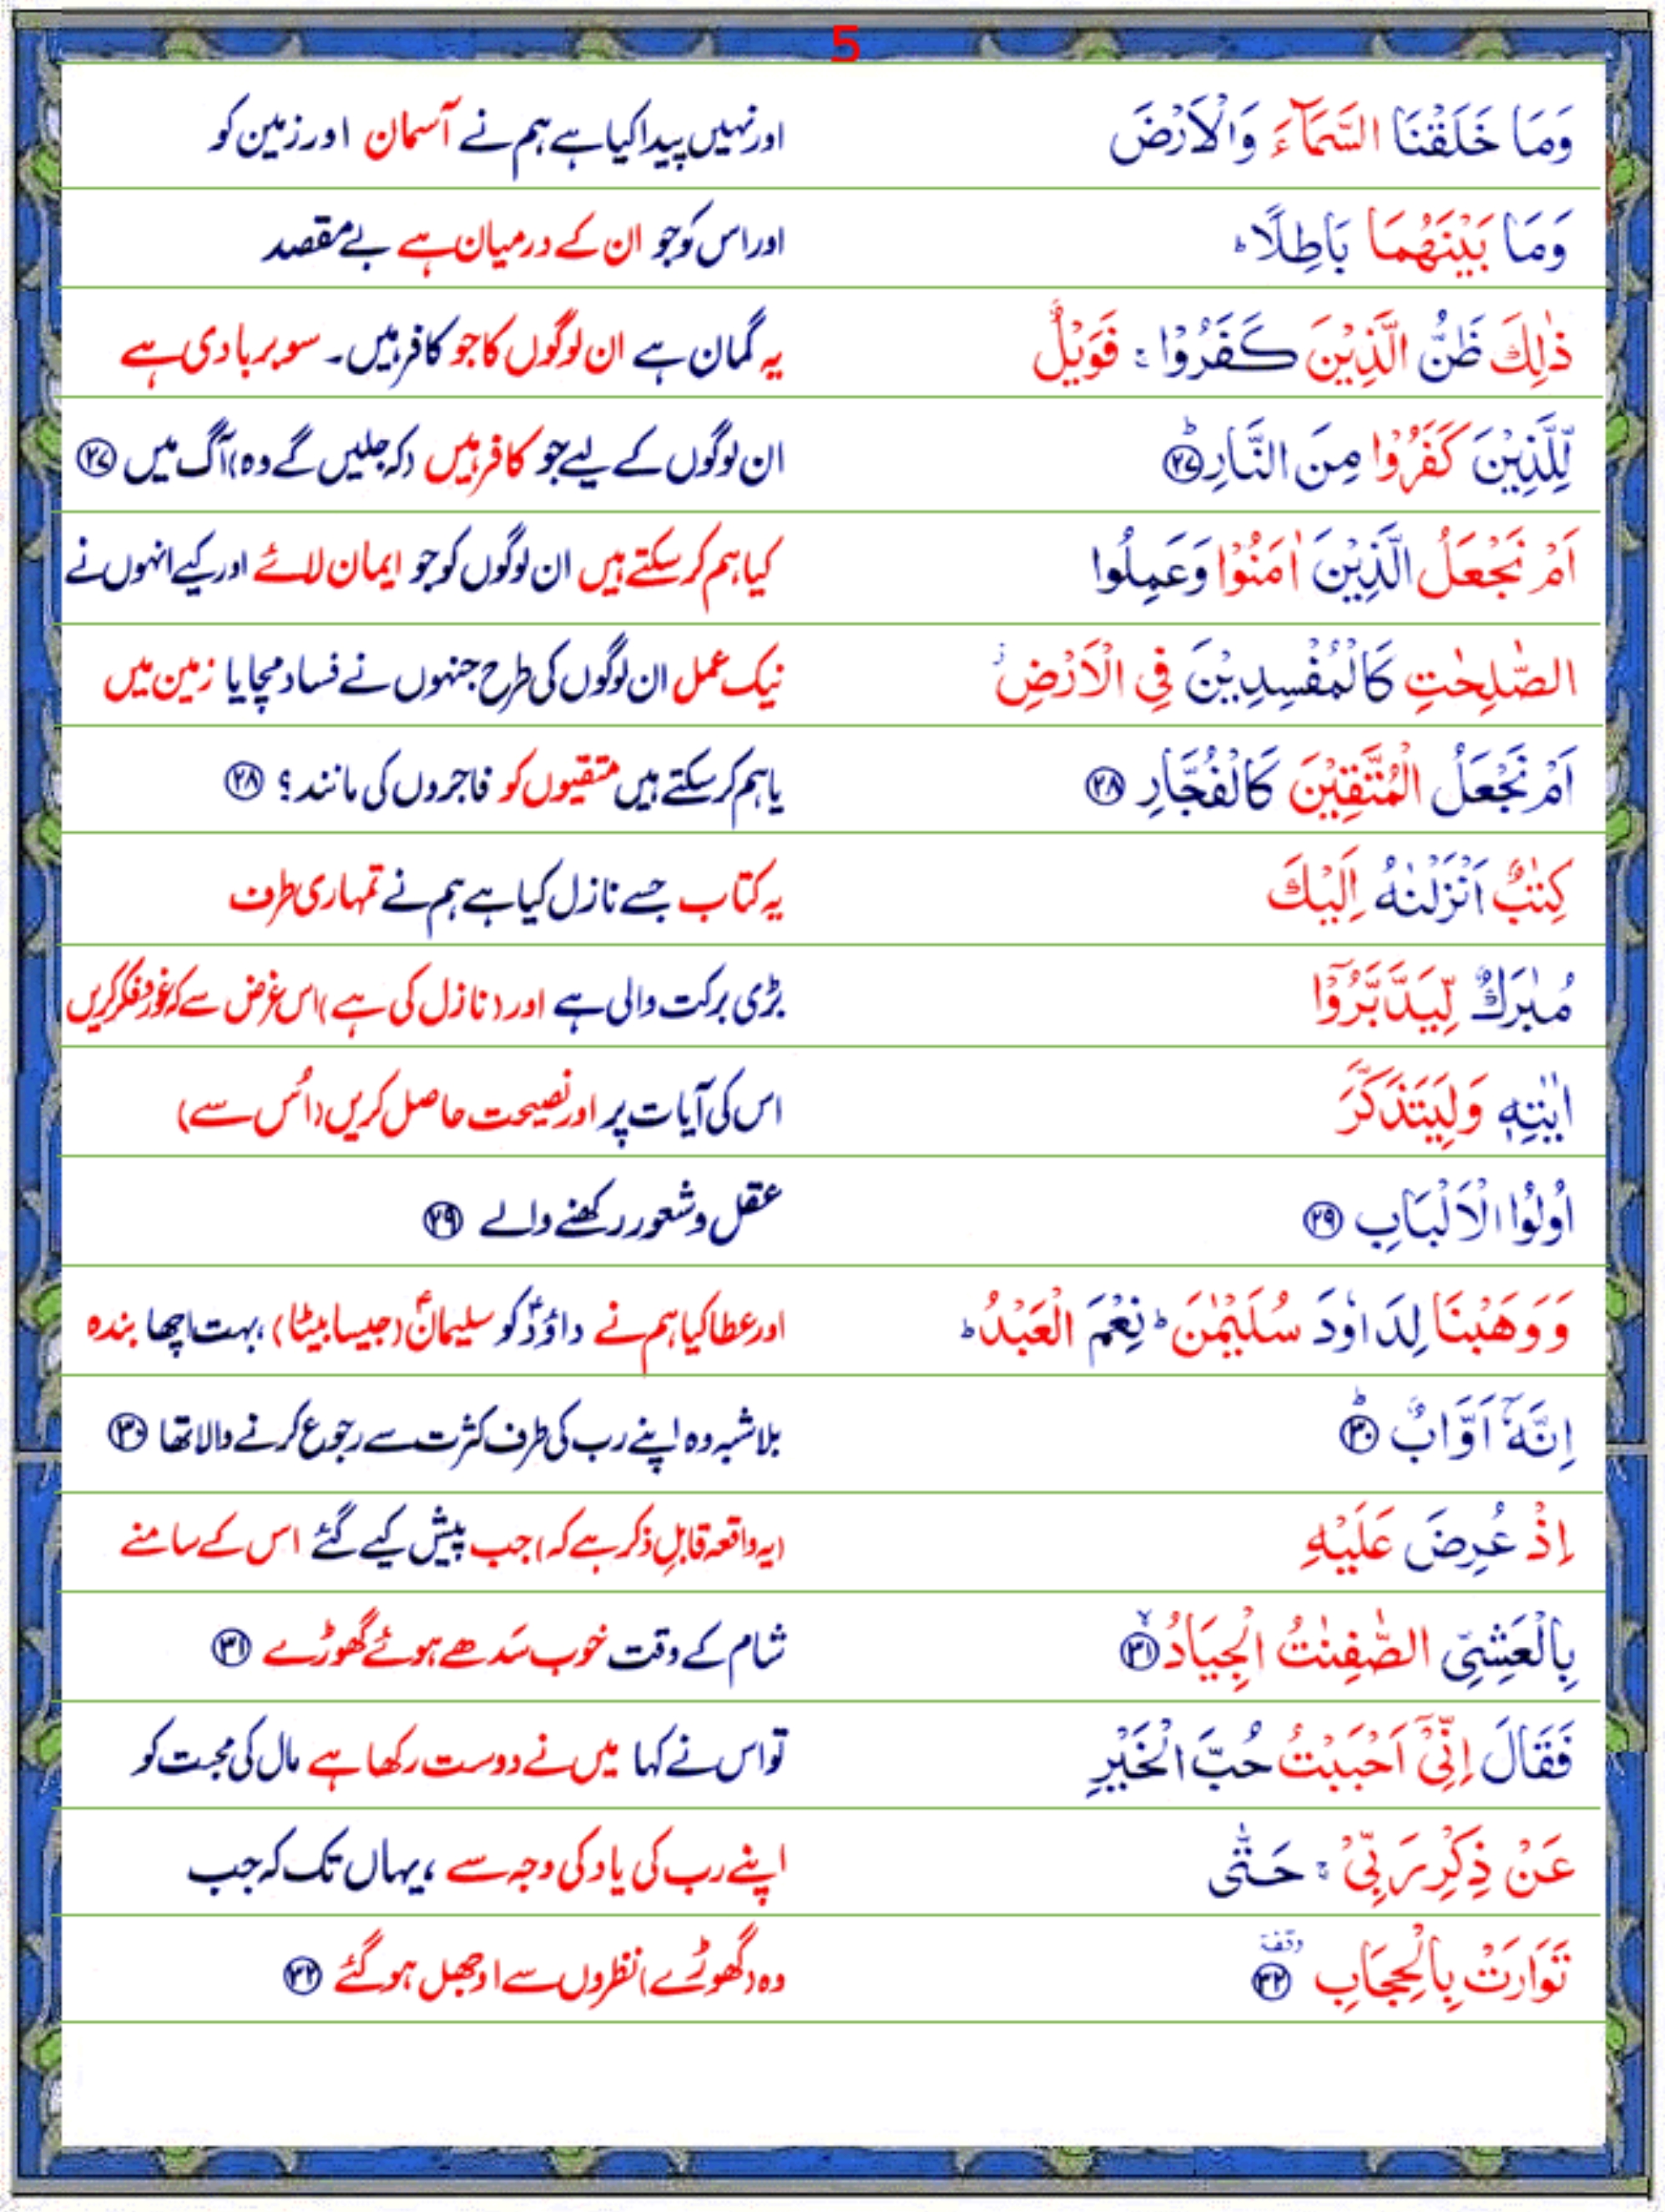 5
وَمَا خَلَقْنَا السَّمَآءَ وَالْاَرْضَ اور نہیں پیدا کیا ہے ہم نے آسمان اور زمین کو
وَمَا بَيْنَهُمَا بَاطِلًا ؕ اور اس کو جو ان کے درمیان ہے بے مقصد
ذٰلِكَ ظَنُّ الَّذِيْنَ كَفَرُوْا ۚ فَوَيْلٌ یہ گمان ہے ان لوگوں کا جو کافر ہیں۔ سو بربادی ہے
لِّلَّذِيْنَ كَفَرُوْا مِنَ النَّارِ ؕ ﴿۲۷﴾ ان لوگوں کے لیے جو کافر ہیں (کہ جلیں گے وہ) آگ میں ﴿۲۷﴾
اَمْ نَجْعَلُ الَّذِيْنَ اٰمَنُوْا وَعَمِلُوا کیا ہم کر سکتے ہیں ان لوگوں کو جو ایمان لائے اور کیے انہوں نے
الصّٰلِحٰتِ كَالْمُفْسِدِيْنَ فِي الْاَرْضِ ؗ نیک عمل ان لوگوں کی طرح جنہوں نے فساد مچایا زمین میں
اَمْ نَجْعَلُ الْمُتَّقِيْنَ كَالْفُجَّارِ ﴿۲۸﴾ یا ہم کر سکتے ہیں متقیوں کو فاجروں کی مانند؟ ﴿۲۸﴾
كِتٰبٌ اَنْزَلْنٰهُ اِلَيْكَ یہ کتاب جسے نازل کیا ہے ہم نے تمہاری طرف
مُبٰرَكٌ لِّيَدَّبَّرُوْٓا بڑی برکت والی ہے اور (نازل کی ہے) اس غرض سے کہ غور و فکر کریں
اٰيٰتِهٖ وَلِيَتَذَكَّرَ اس کی آیات پر اور نصیحت حاصل کریں (اُس سے)
اُولُوا الْاَلْبَابِ ﴿۲۹﴾ عقل و شعور رکھنے والے ﴿۲۹﴾
وَوَهَبْنَا لِدَاوٗدَ سُلَيْمٰنَ ؕ نِعْمَ الْعَبْدُ ؕ اور عطا کیا ہم نے داؤدؑ کو سلیمانؑ (جیسا بیٹا)، بہت اچھا بندہ
اِنَّهٗٓ اَوَّابٌ ؕ ﴿۳۰﴾ بلاشبہ وہ اپنے رب کی طرف کثرت سے رجوع کرنے والا تھا ﴿۳۰﴾
اِذْ عُرِضَ عَلَيْهِ (یہ واقعہ قابلِ ذکر ہے کہ) جب پیش کیے گئے اس کے سامنے
بِالْعَشِيِّ الصّٰفِنٰتُ الْجِيَادُ ۙ ﴿۳۱﴾ شام کے وقت خوب سَدھے ہوئے گھوڑے ﴿۳۱﴾
فَقَالَ اِنِّيْٓ اَحْبَبْتُ حُبَّ الْخَيْرِ تو اس نے کہا میں نے دوست رکھا ہے مال کی محبت کو
عَنْ ذِكْرِ رَبِّيْ ۚ حَتّٰى اپنے رب کی یاد کی وجہ سے، یہاں تک کہ جب
تَوَارَتْ بِالْحِجَابِ وقفۃ ﴿۳۲﴾ وہ (گھوڑے) نظروں سے اوجھل ہو گئے ﴿۳۲﴾